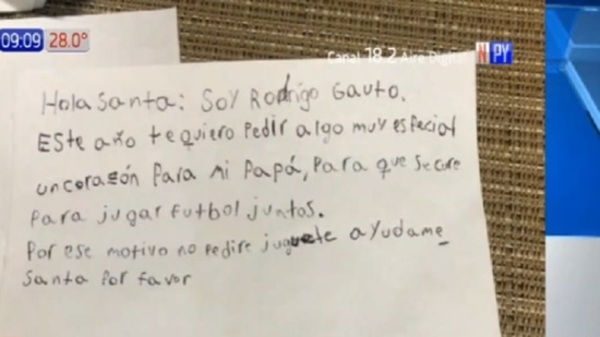 09:09 28.0°
Canal 18.2 Aire Digital NPY
Hola Santa: Soy Rodrigo Gauto.
Este año te quiero pedir algo muy especial
un corazón para mi Papá, para que se cure
para jugar futbol juntos.
Por ese motivo no pedire juguete ayudame
santa por favor